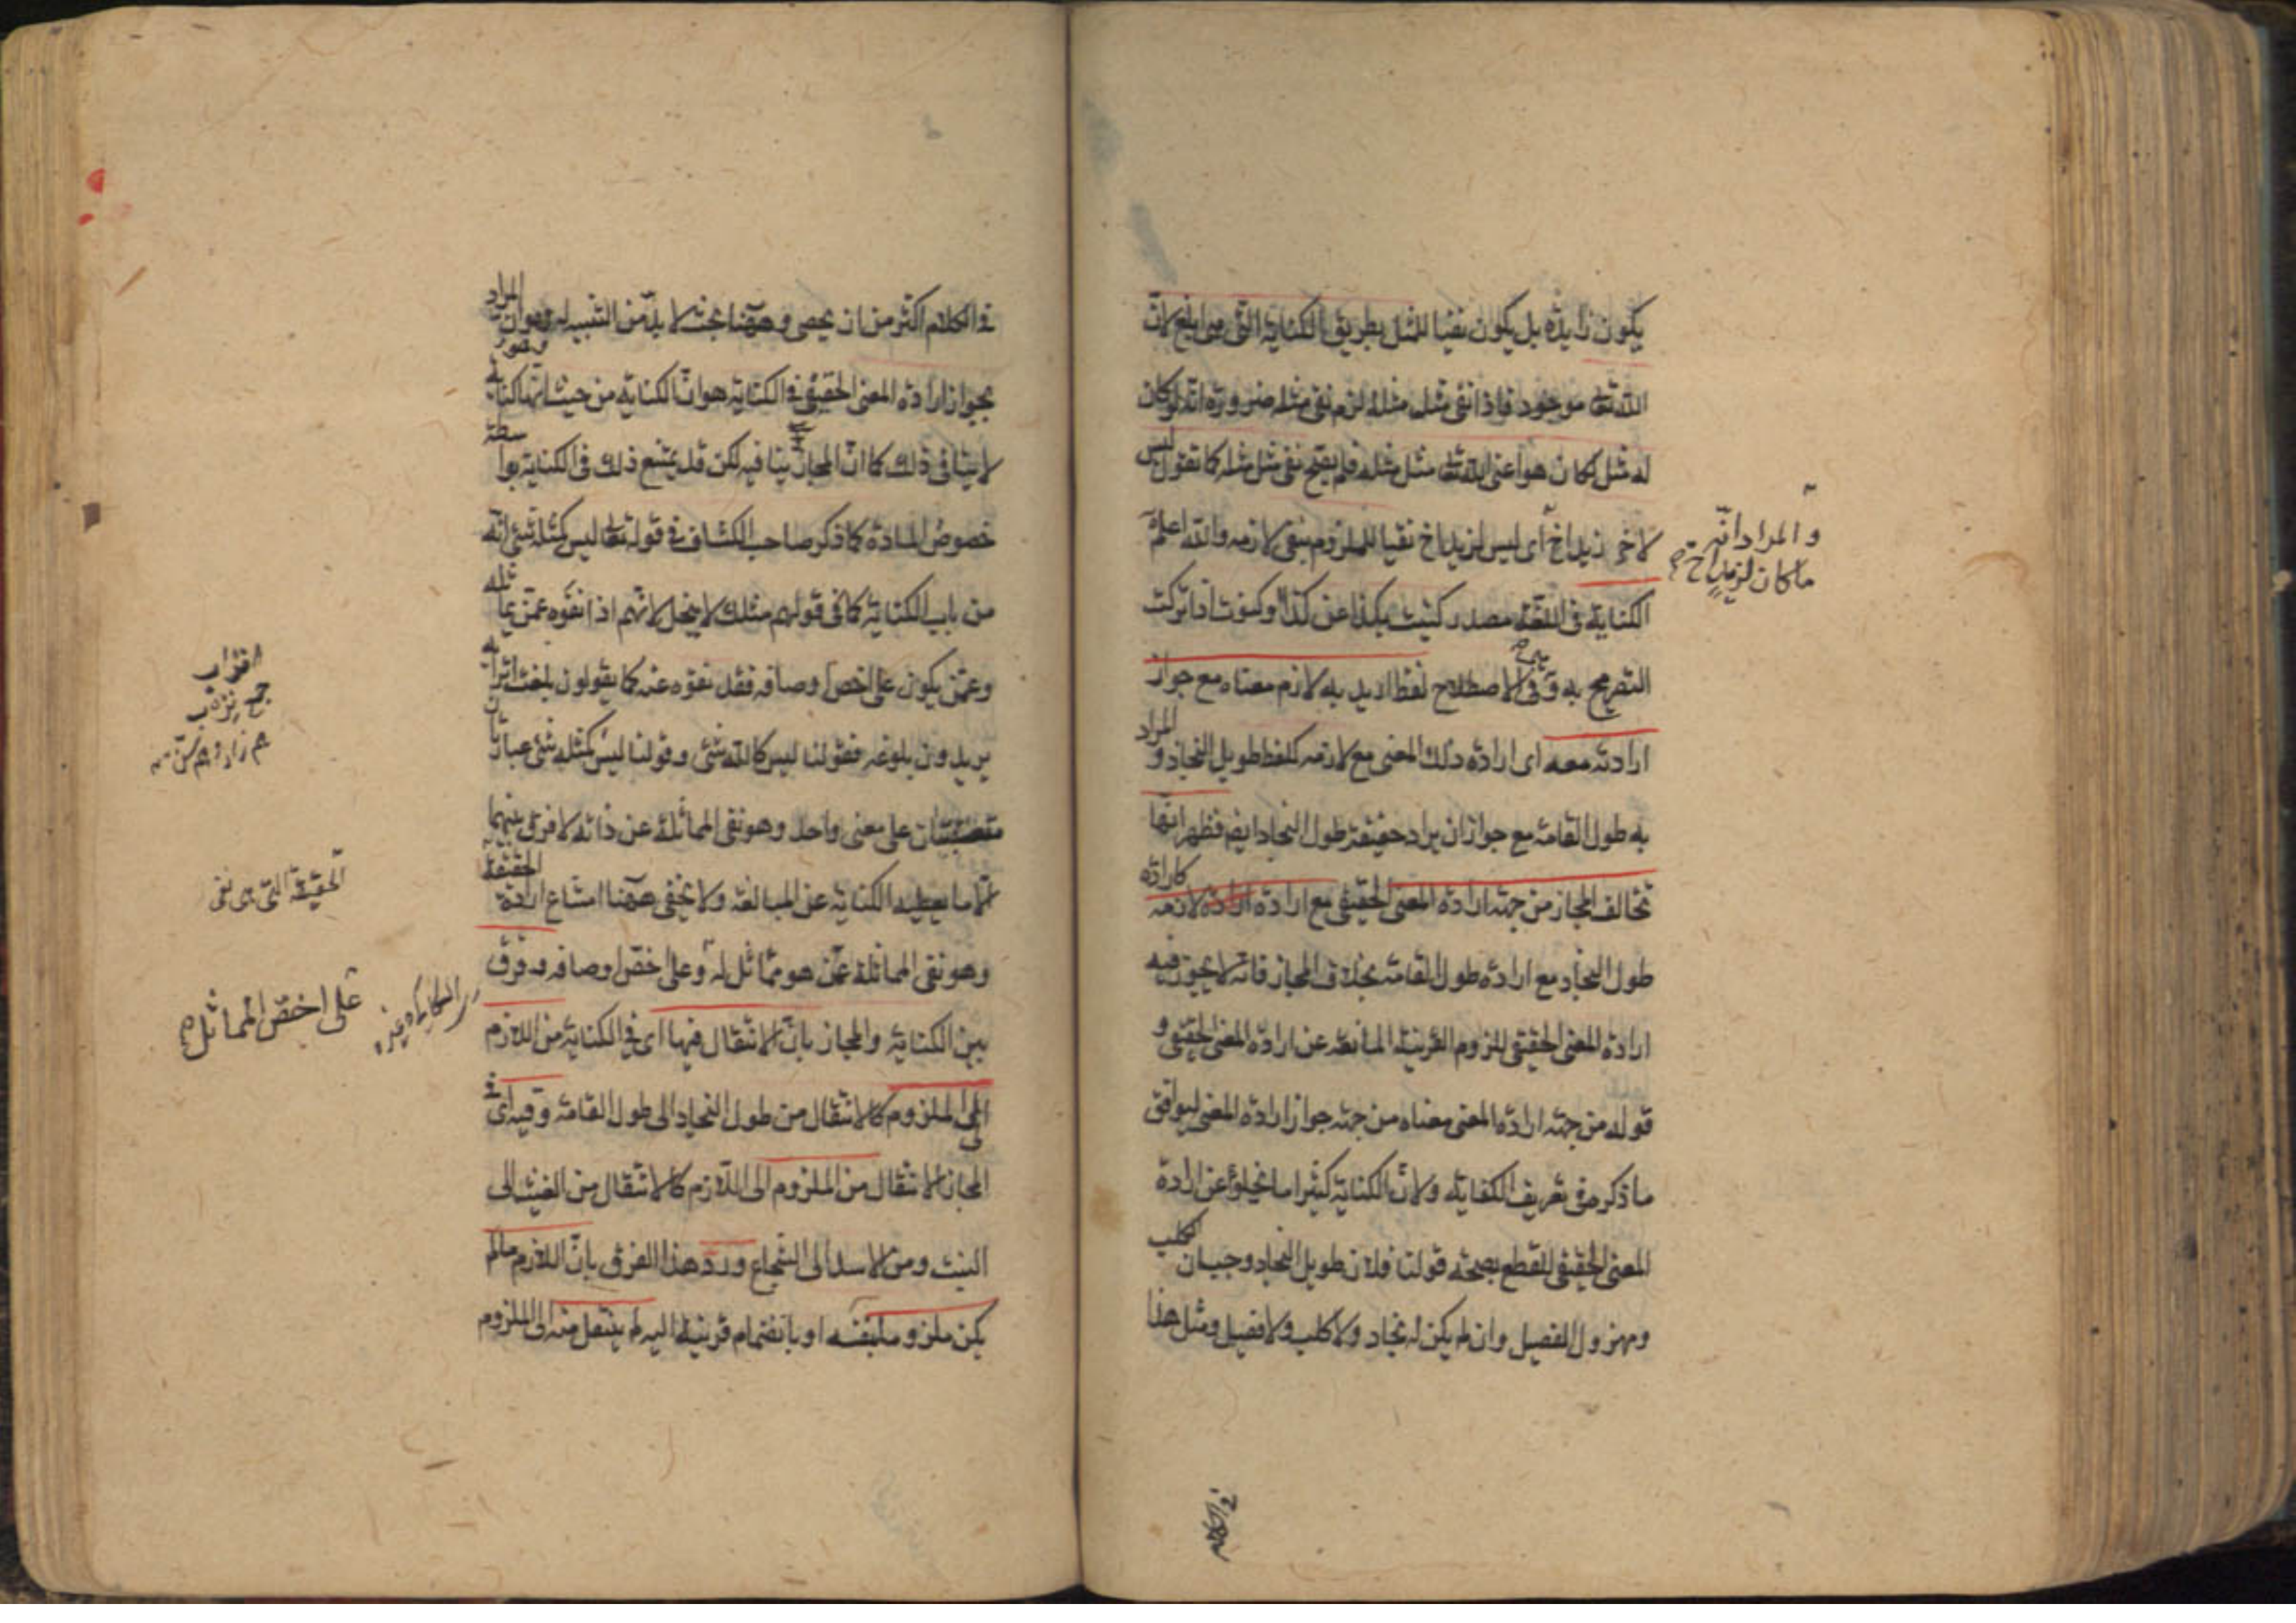 يكون زايدة بل يكون نفيا للمثل بطريق الكناية التى هى ابلغ لان
الله تعالى موجود فاذا نفى مثل مثله لزم نفى مثله ضرورة انه لو كان
له مثل لكان هو اعنى الله تعالى مثل مثله فلم يصح نفى مثل مثله كما تقول ليس
لاخى زيد اخ اى ليس لزيد اخ نفيا للملزوم بنفى لازمه والله اعلم
و المراد انه
ما كان لزيد اخ
الكناية فى اللغة مصدر كنيت بكذا عن كذا وكنوت اذا تركت
التصريح به و فى الاصطلاح لفظ اريد به لازم معناه مع جواز
ارادته معه اى ارادة ذلك المعنى مع لازمه كلفظ طويل النجاد و المراد
به طول القامة مع جواز ان يراد حقيقة طول النجاد ايضا فظهر انها
تخالف المجاز من جهة ارادة المعنى الحقيقى مع ارادة لازمه كارادة
طول النجاد مع ارادة طول القامة بخلاف المجاز فانه لا يجوز فيه
ارادة المعنى الحقيقى للزوم القرينة المانعة عن ارادة المعنى الحقيقى و
قوله من جهة ارادة المعنى معناه من جهة جواز ارادة المعنى ليوافق
ما ذكر فى تعريف الكناية ولان الكناية كثيرا ما تخلو عن ارادة
المعنى الحقيقى للقطع بصحة قولنا فلان طويل النجاد وجبان الكلب
ومهزول الفصيل وان لم يكن له نجاد ولا كلب ولا فصيل ومثل هذا
فى الكلام اكثر من ان يحصى وههنا بحث لا بد من التنبيه له وهو ان المراد
بجواز ارادة المعنى الحقيقى فى الكناية هو ان الكناية من حيث انها كناية
لا ينافى ذلك كما ان المجاز ينافيه لكن قد يمتنع ذلك فى الكناية بواسطة
خصوص المادة كما ذكر صاحب الكشاف فى قوله تعالى ليس كمثله شئ انه
من باب الكناية كما فى قولهم مثلك لا يبخل لانهم اذا نفوه عمن يماثله
وعمن يكون على اخص اوصافه فقد نفوه عنه كما يقولون بلغت اترابه
اتراب
جمع ترب
يريدون بلوغه فقولنا ليس كالله شئ وقولنا ليس كمثله شئ عبارتان
متعقبتان على معنى واحد وهو نفى المماثلة عن ذاته لا فرق بينهما
الا ما يعطيه الكناية عن المبالغة ولا يخفى ههنا امتناع ارادة الحقيقة
الحقيقة التى هى نفى
وهو نفى المماثلة عمن هو مماثل له وعلى اخص اوصافه وفرق
على اخص المماثل
بين الكناية والمجاز بان الانتقال فيها اى فى الكناية من اللازم
الى الملزوم كالانتقال من طول النجاد الى طول القامة وفيه اى فى
المجاز الانتقال من الملزوم الى اللازم كالانتقال من الغيث الى
النبت ومن الاسد الى الشجاع ورد هذا الفرق بان اللازم ما لم
يكن ملزوما بنفسه او بانضمام قرينة اليه لم ينتقل منه الى الملزوم